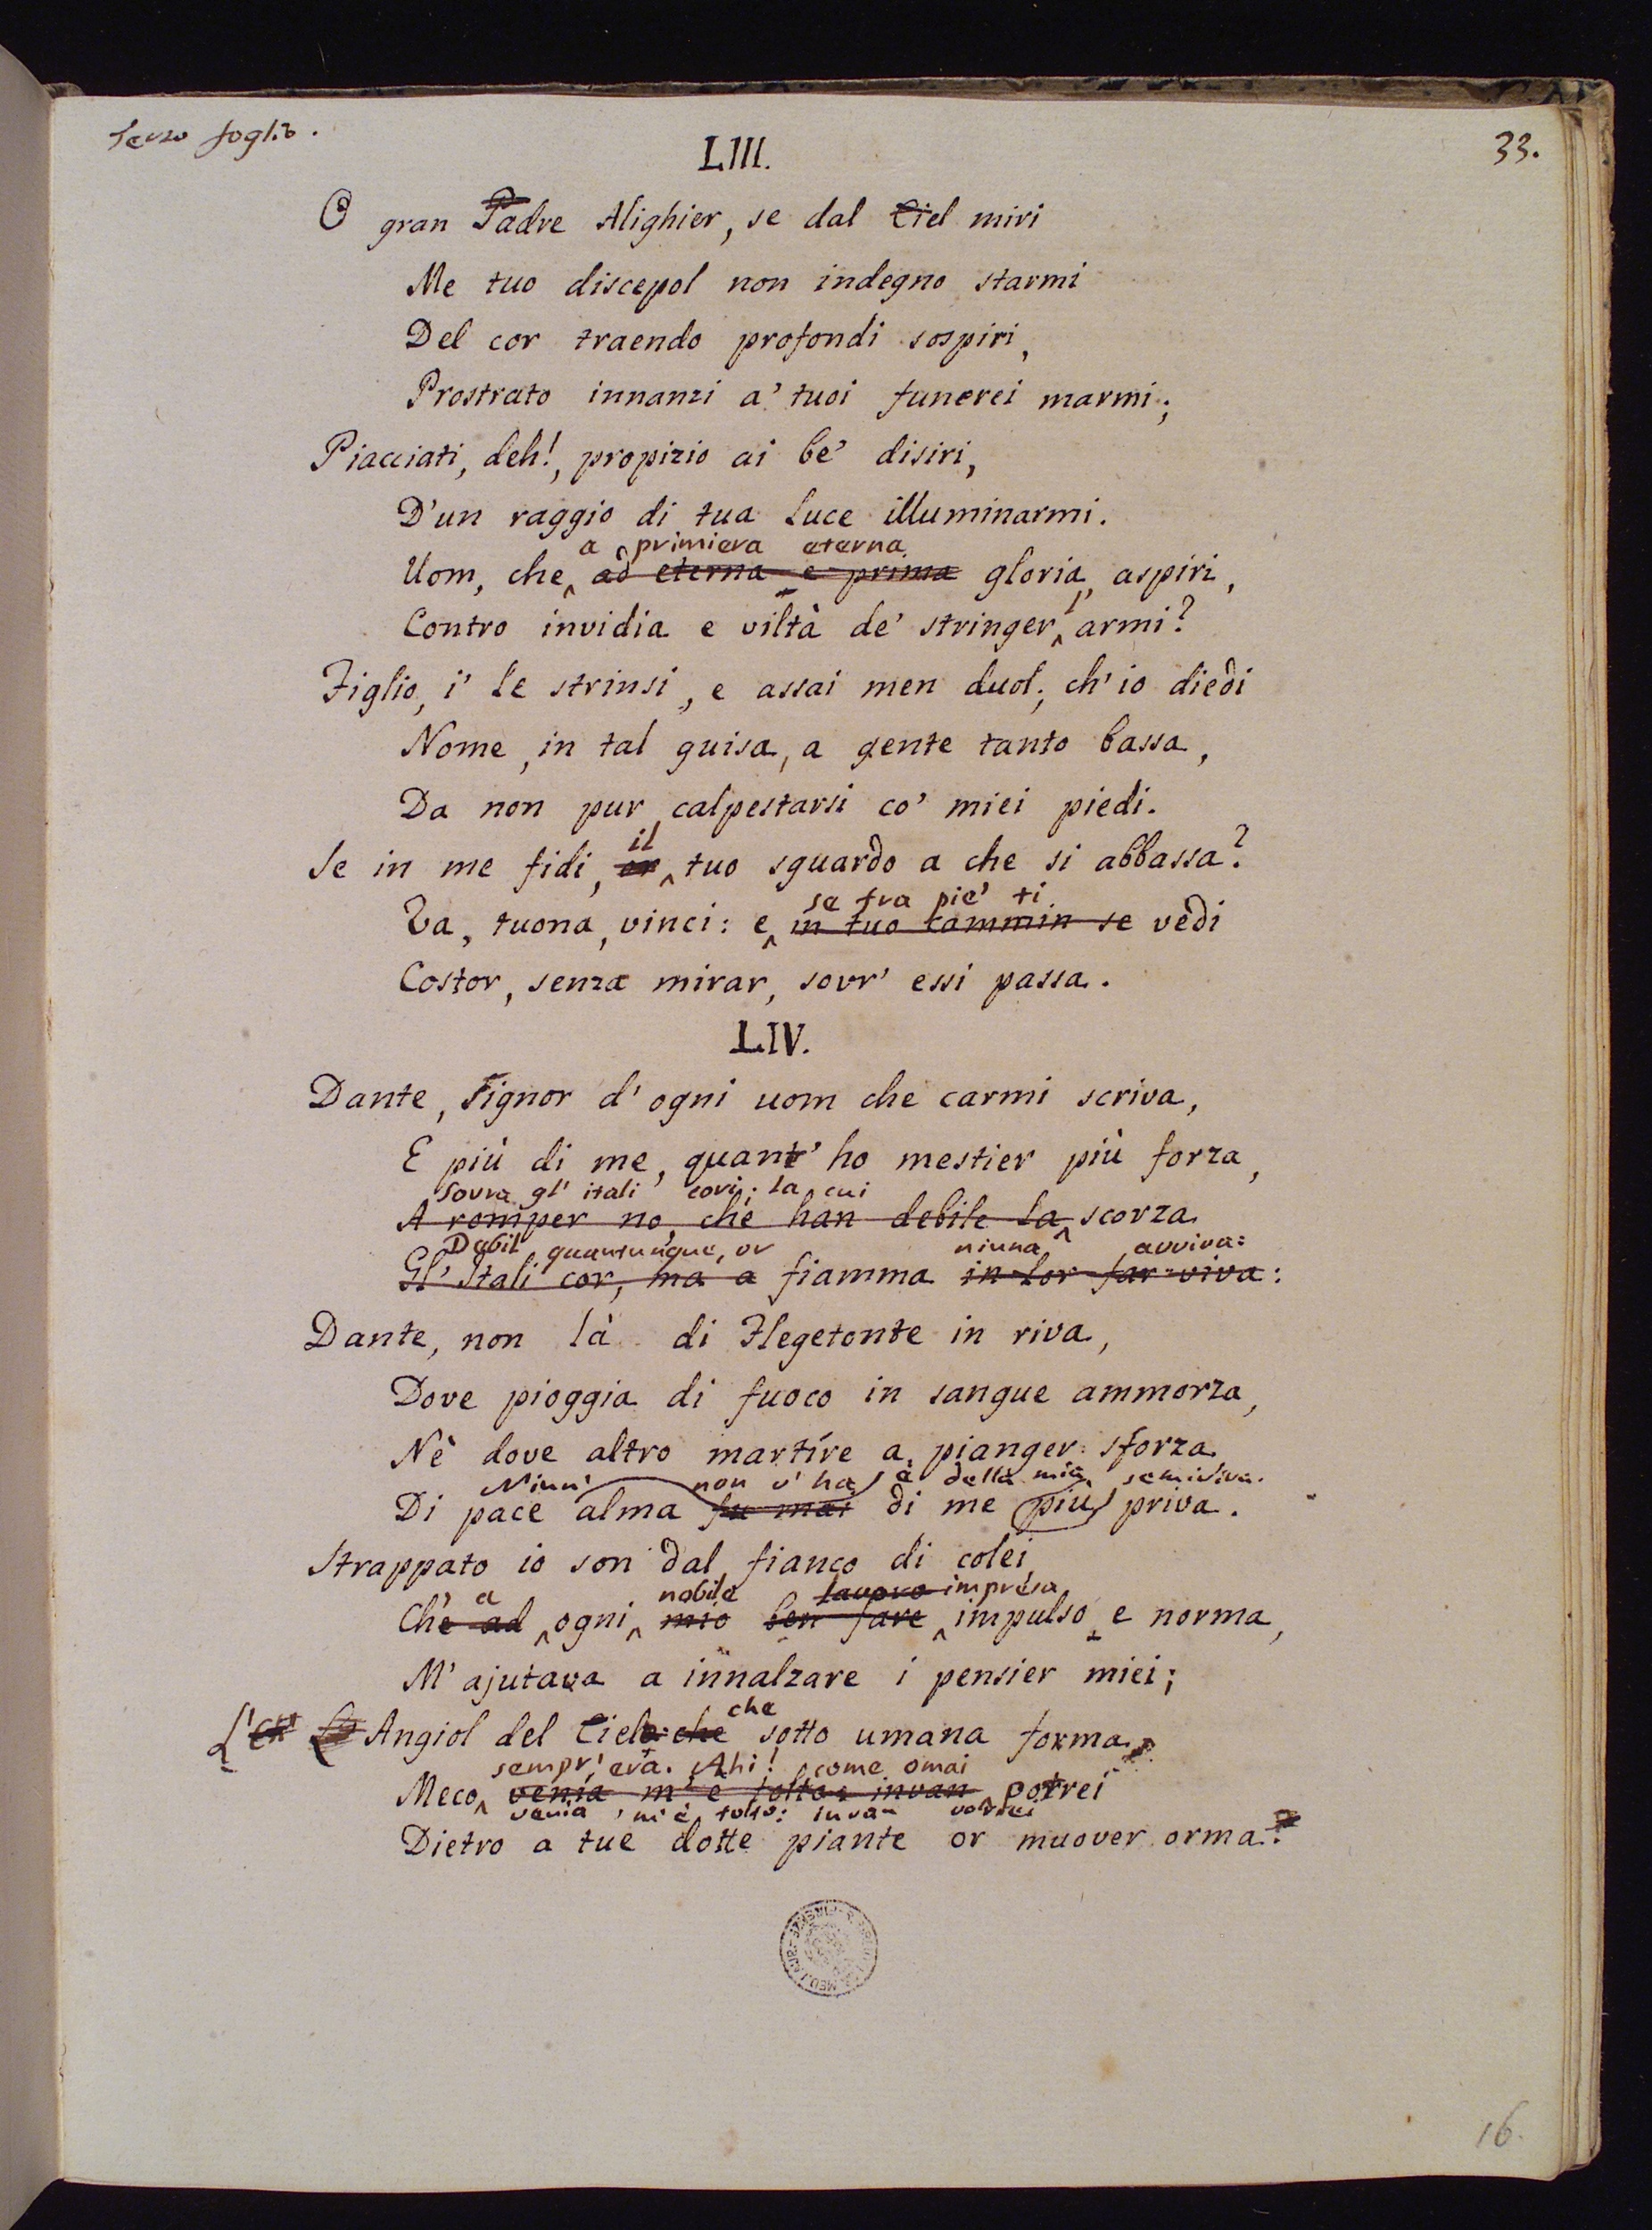 Terzo foglio.
33.
LIII.
O gran Padre Alighier, se dal Ciel miri
Me tuo discepol non indegno starmi
Del cor traendo profondi sospiri,
Prostrato innanzi a' tuoi funerei marmi;
Piacciati, deh!, propizio ai be' disiri,
D'un raggio di tua luce illuminarmi.
a primiera eterna
Uom, che ad eterna e prima gloria, aspiri,
Contro invidia e viltà de' stringer l'armi?
Figlio, i' le strinsi, e assai men duol; ch'io diedi
Nome, in tal guisa, a gente tanto bassa,
Da non pur calpestarsi co' miei piedi.
il
Se in me fidi, or tuo sguardo a che si abbassa?
se fra pie' ti
Va, tuona, vinci: e in tuo cammin se vedi
Costor, senza mirar, sovr' essi passa.
LIV.
Dante, Signor d'ogni uom che carmi scriva,
E più di me, quant' ho mestier più forza,
Sovra gl' itali cori; la cui
A romper no, che han debile la scorza
Debil quantunque, or niuna avviva:
Gl' Itali cor, ma a fiamma in lor far viva:
Dante, non là di Flegetonte in riva,
Dove pioggia di fuoco in sangue ammorza,
Nè dove altro martíre a pianger sforza
Niun' non v'ha è della mia semiviva.
Di pace alma fu mai di me più priva.
Strappato io son dal fianco di colei
a nobile lavoro impresa
Chè ad ogni mio ben fare impulso e norma,
M'ajutava a innalzare i pensier miei;
che
L' Angiol del Cielo che sotto umana forma
sempr' era. Ahi! come omai
Meco venía m'è tolto: invan potrei
venia, m'è tolto: invan vorrei
Dietro a tue dotte piante or muover orma.
16.